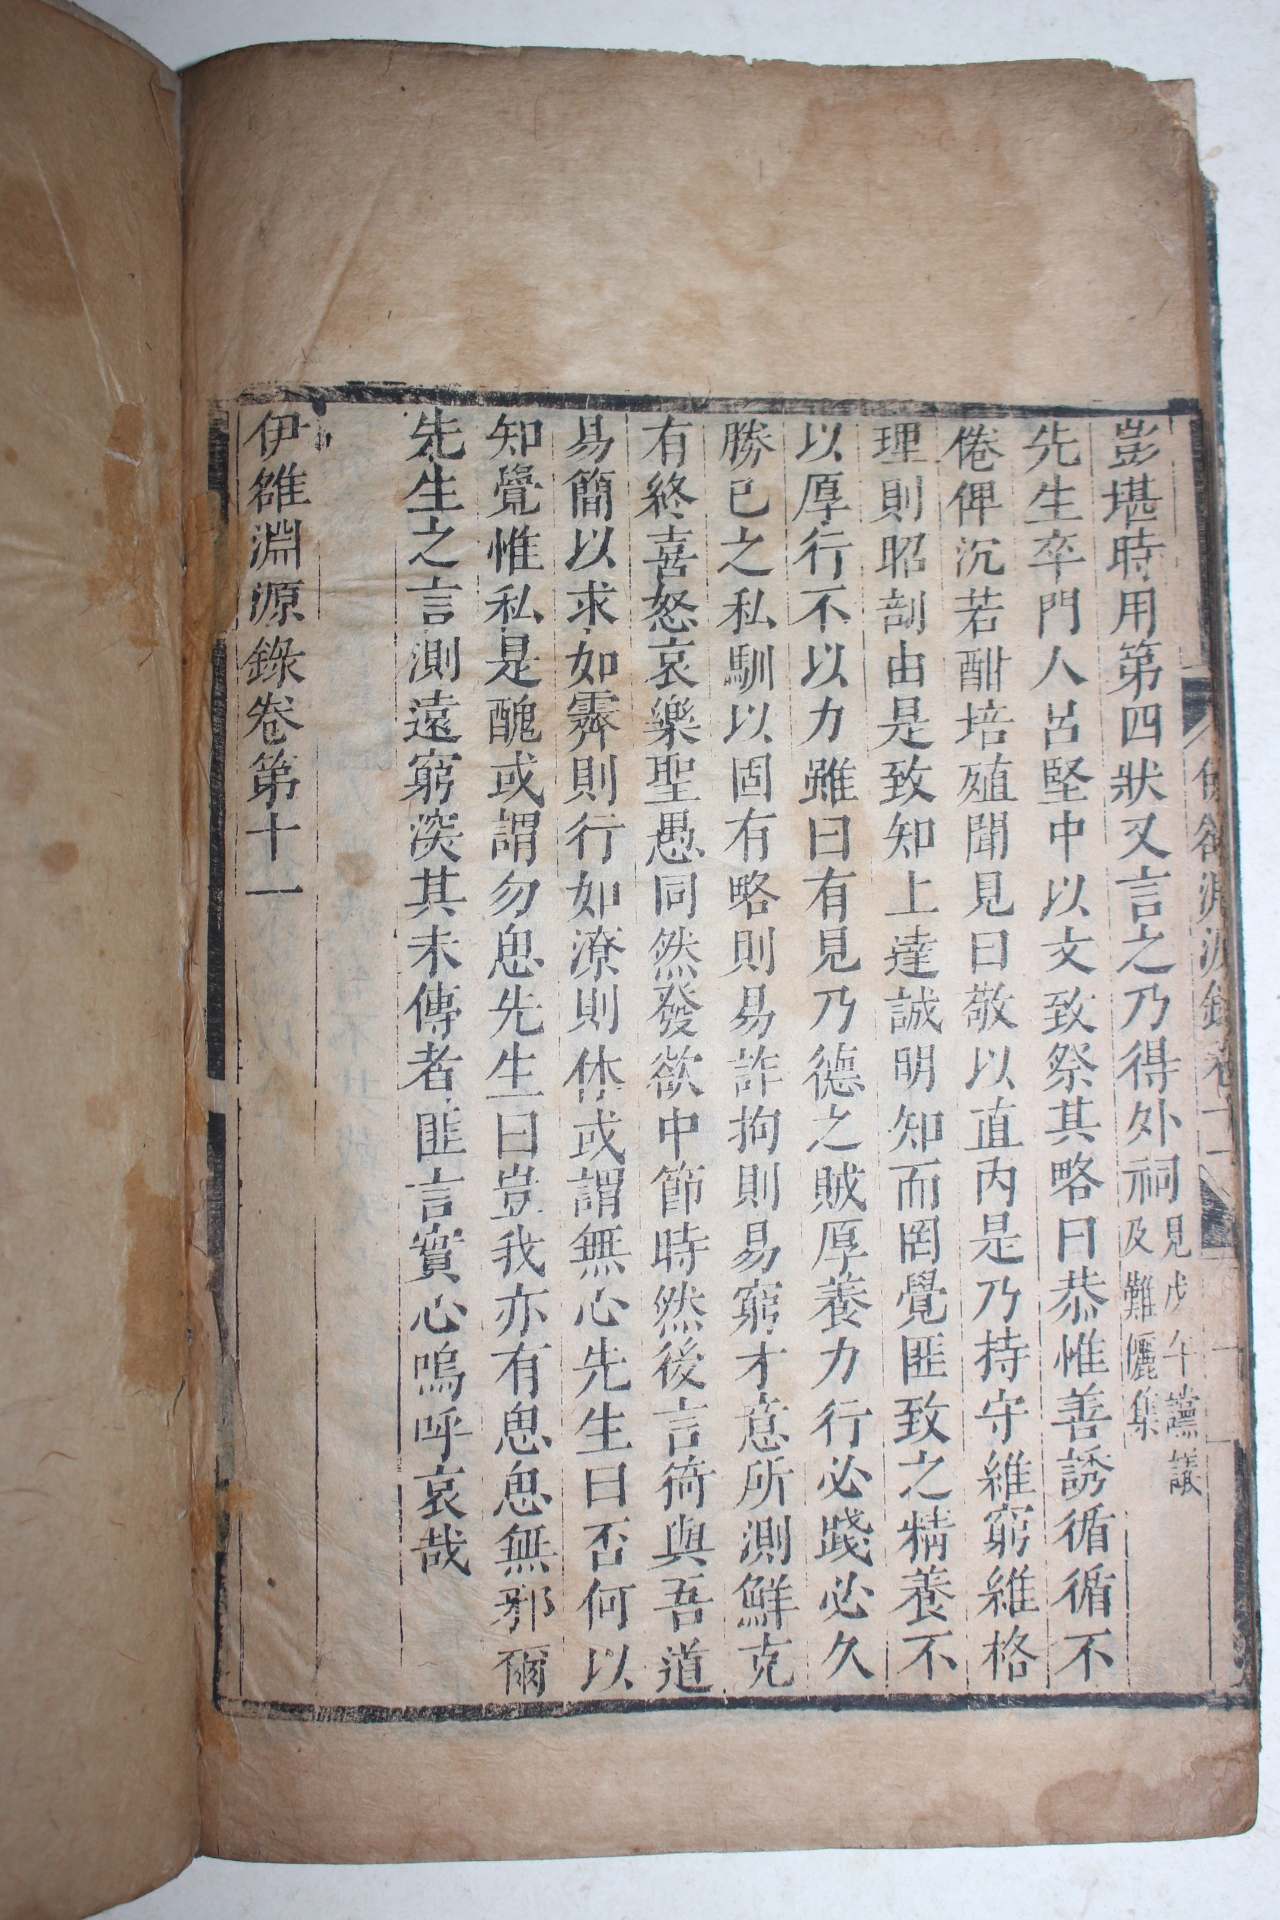 彭堪時用第四狀又言之乃得外祠見戊午讜議及難儷集
先生卒門人呂堅中以文致祭其略曰恭惟善誘循循不
倦俾沉若酣培殖聞見曰敬以直內是乃持守維窮維格
理則昭剖由是致知上達誠明知而罔覺匪致之精養不
以厚行不以力雖曰有見乃德之賊厚養力行必踐必久
勝已之私馴以固有略則易詐拘則易窮才意所測鮮克
有終喜怒哀樂聖愚同然發欲中節時然後言猗與吾道
易簡以求如霽則行如潦則休或謂無心先生曰否何以
知覺惟私是醜或謂勿思先生曰豈我亦有思思無邪爾
先生之言測遠窮深其未傳者匪言實心嗚呼哀哉
伊雒淵源錄卷第十一